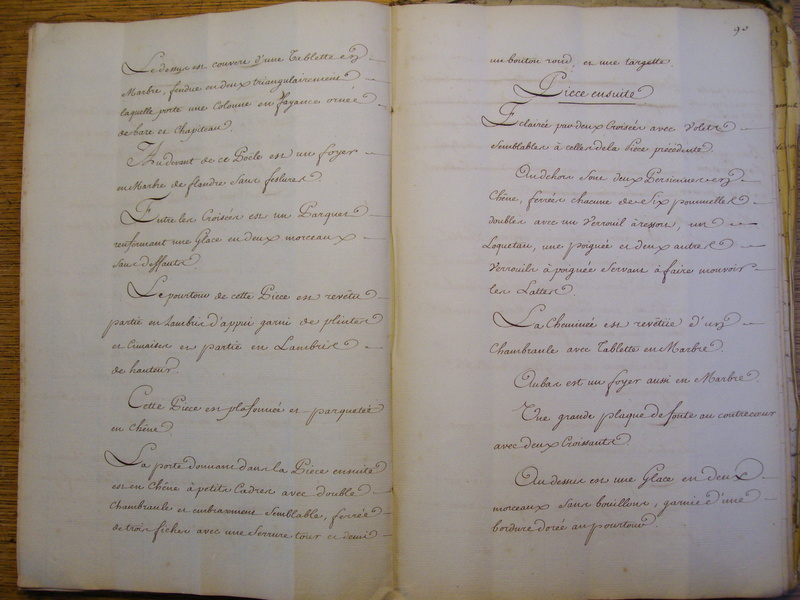 Le dessus est couvert d'une Tablette en
Marbre, fendue en deux triangulairement
laquelle porte une Colonne en fayance ornée
de baze et Chapiteau.
Au devant de ce Poele est un foyer
en Marbre de flandre sans feslures.
Entre les Croisées est un Parquet
renfermant une Glace en deux morceaux
sans deffauts.
Le pourtour de cette Piece est revêtu
partie en Lambris d'appui garni de plintes
et Cimaises et partie en Lambris
de hauteur.
Cette Piece est plafonnée et parquetée
en Chêne.
La porte donnant dans la Piece ensuite
est en Chêne à petits Cadres avec double
Chambranle et embrasement semblable, ferrée
de trois fiches avec une Serrure tour et demi
90
un bouton rond, et une targette.
Piece ensuite
Eclairée par deux Croisées avec Volets
semblables à celles de la Piece précédente.
Au dehors sont deux Persiennes en
Chêne, ferrées chacune de Six poumelles
doubles avec un Verrouil à resson, un
Loqueteau, une poignée et deux autres
Verrouils à poignée servans à faire mouvoir
les Lattes.
La Cheminée est revêtue d'un
Chambranle avec Tablette en Marbre.
Au bas est un foyer aussi en Marbre.
Une grande plaque de fonte au contrecoeur
avec deux Croissants.
Au dessus est une Glace en deux
morceaux sans bouillons, garnie d'une
bordure dorée au pourtour.